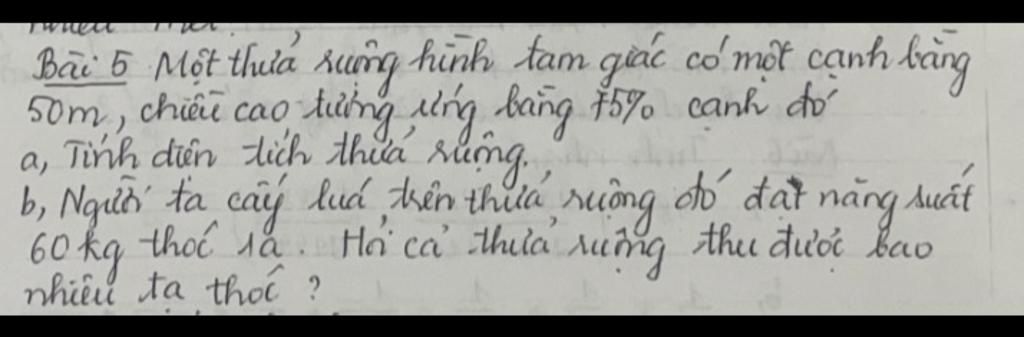 Bài 5 Một thửa ruộng hình tam giác có một cạnh bằng
50m, chiều cao tương ứng bằng 75% cạnh đó
a, Tính diện tích thửa ruộng.
b, Người ta cấy lúa trên thửa ruộng đó đạt năng suất
60kg thóc 1a. Hỏi cả thửa ruộng thu được bao
nhiêu tạ thóc ?